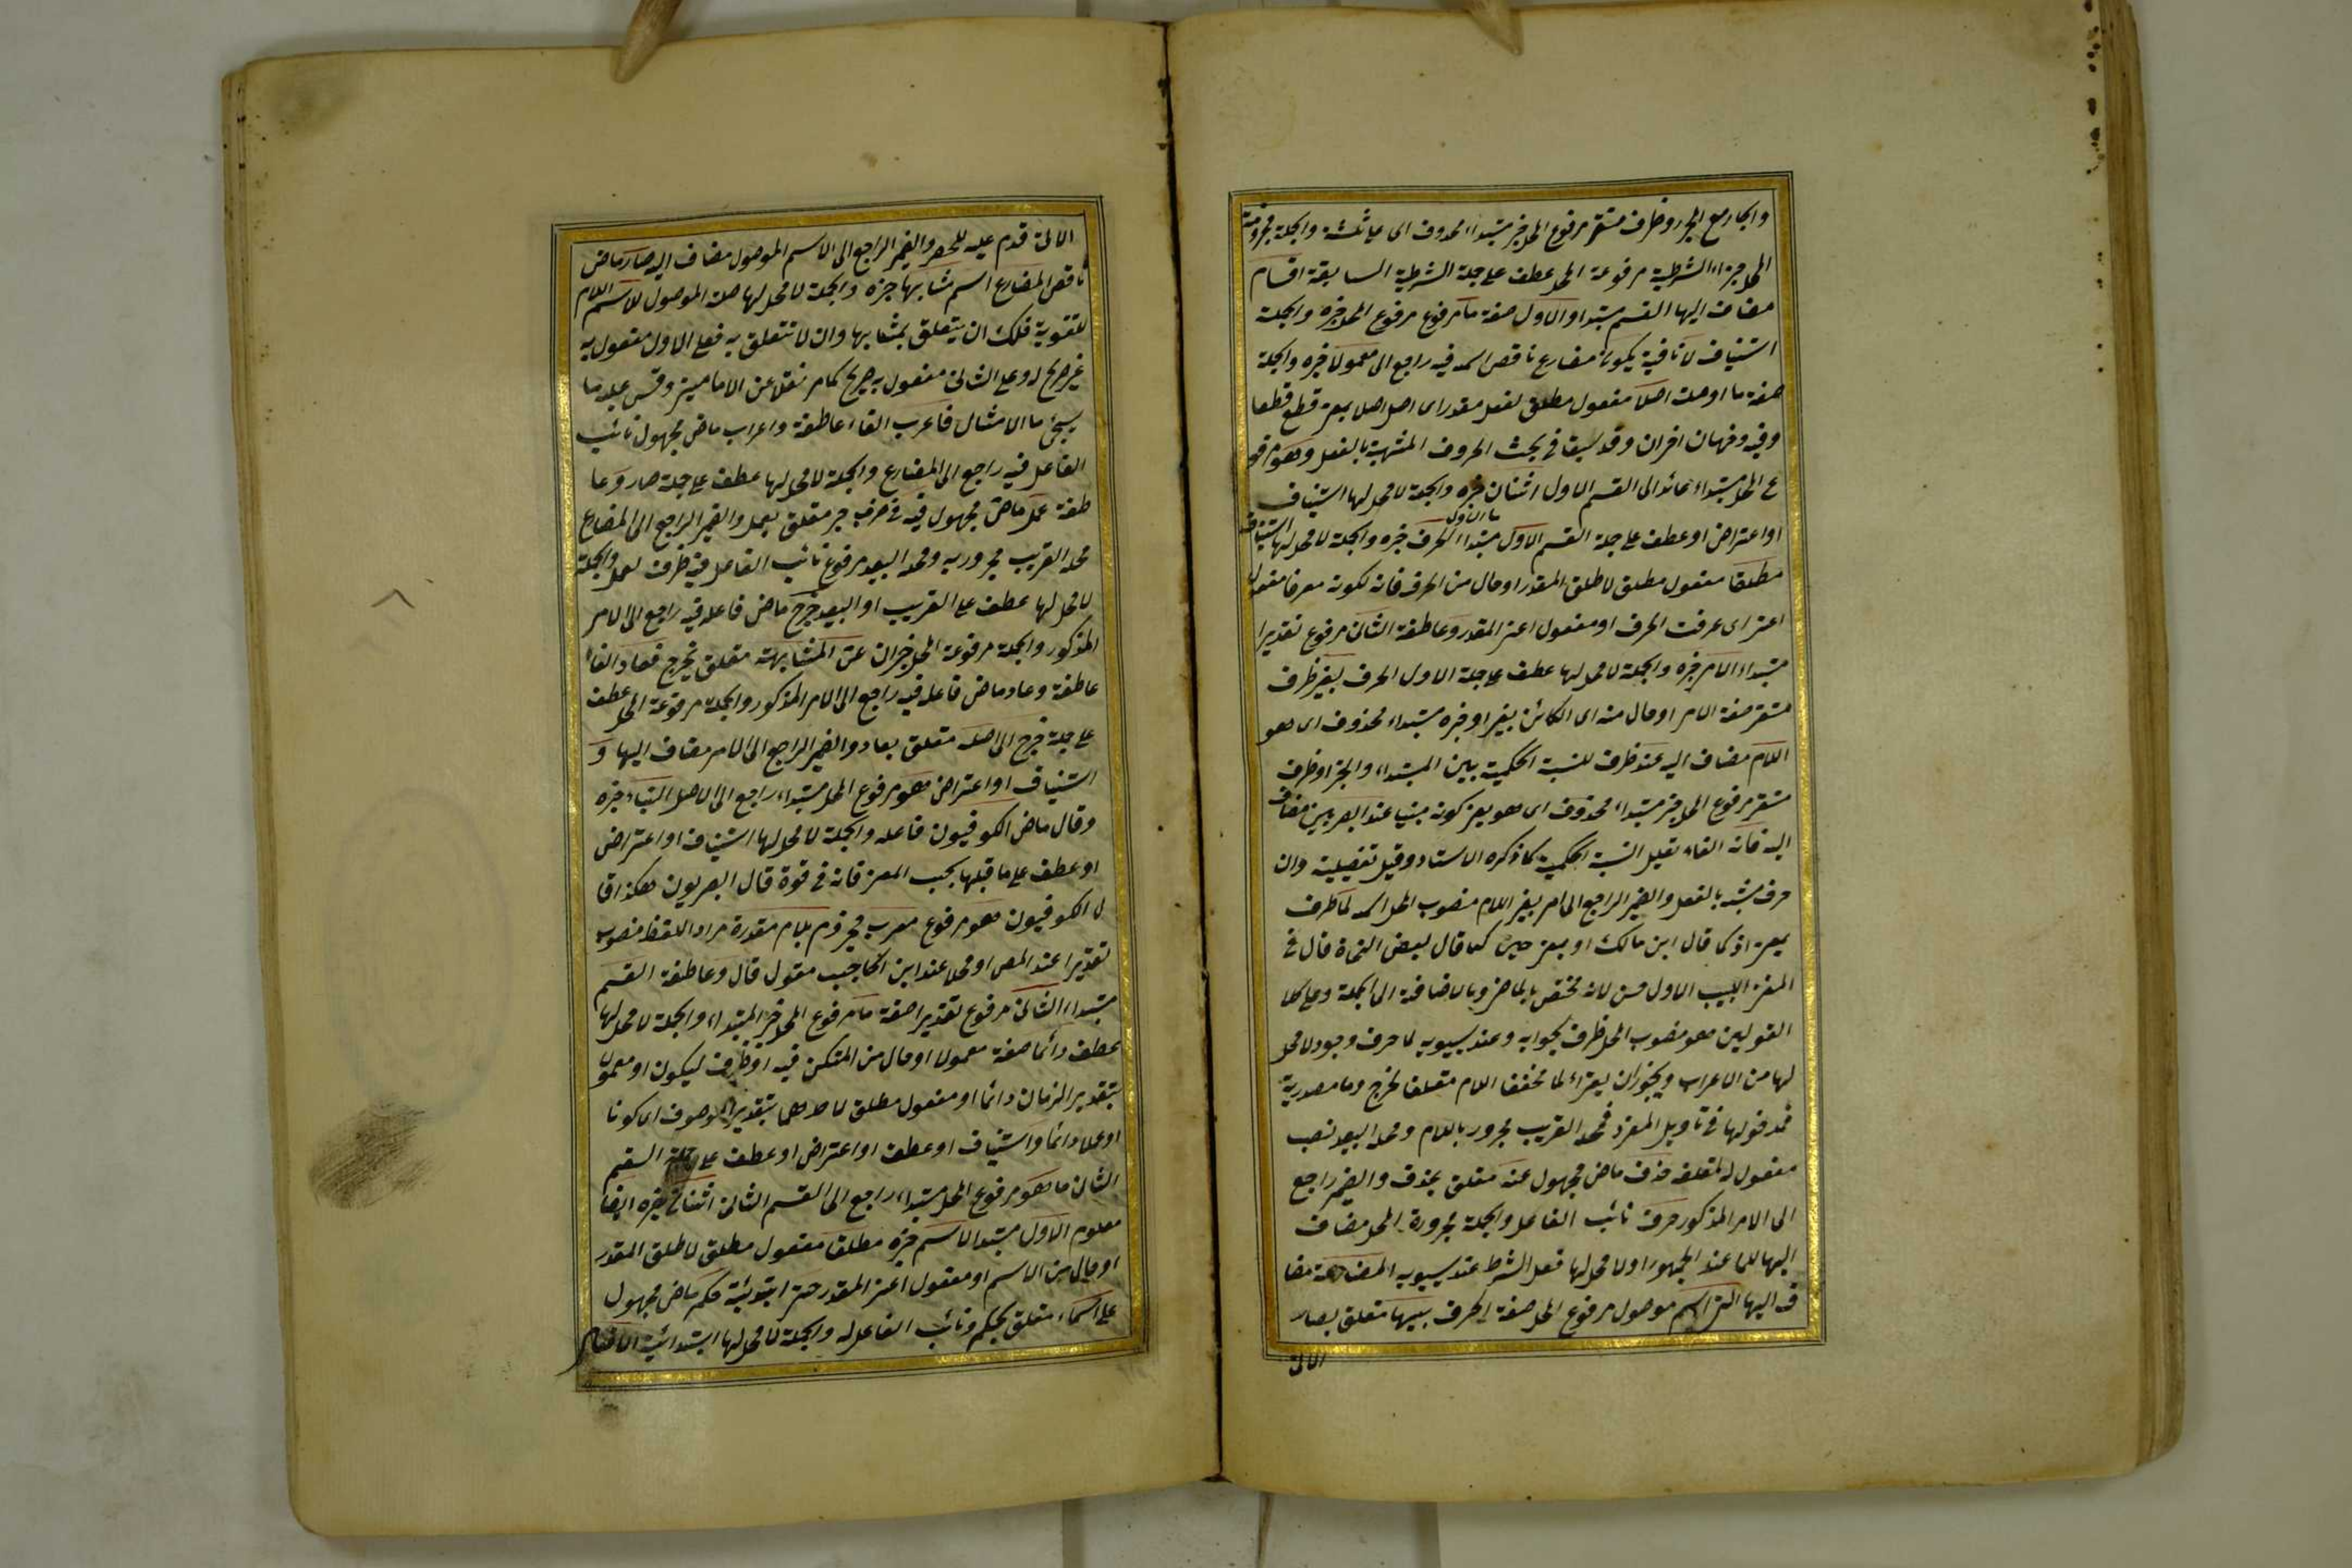 والجار مع المجرور ظرف مستقر مرفوع المحل خبر مبتداء محذوف اى هى ثلثة والجملة مجزومة
المحل جزاء الشرطية مرفوعة المحل عطف على جملة الشرطية السابقة اقسام
مضاف اليها القسم مبتدا والاول صفة ما مرفوع مرفوع المحل خبره والجملة
استيناف لا نافية يكون مضارع ناقص اسمه فيه راجع الى معمولا خبره والجملة
صفة ما او صلته اصلا مفعول مطلق لفعل مقدر اى اصل اصلا بمعنى قطع قطعا
وفيه وجهان اخران وقد سبقا فى بحث الحروف المشبهة بالفعل وهو مرفو
ع المحل مبتداء عائد الى القسم الاول اثنان خبره والجملة لا محل لها استيناف
او اعتراض او عطف على جملة القسم الاول مبتداء الحرف خبره والجملة لا محل لها استيناف
مطلقا مفعول مطلق لاطلق المقدر او حال من الحرف فانه لكونه معرفا مفعول
اعنى اى عرفت الحرف او مفعول اعنى المقدر وعاطفة الثانى مرفوع تقديرا
مبتداء الامر خبره والجملة لا محل لها عطف على جملة الاول الحرف بغير ظرف
مستقر صفة الامر او حال منه اى الكائن بغير او خبره مبتداء محذوف اى هو
اللام مضاف اليه عند ظرف للنسبة الحكمية بين المبتداء والخبر او ظرف
مستقر مرفوع المحل خبر مبتداء محذوف اى هو يعنى كونه مبنيا عند البصريين مضاف
اليه فانه الفاء تعليل النسبة الحكمية كما ذكره الاستاد وقيل تفصيلية وان
حرف مشبه بالفعل والضمير الراجع الى امر بغير اللام منصوب المحل اسمه لما ظرف
بمعنى اذ كما قال ابن مالك او بمعنى حين كما قال بعض النحاة قال فى
المغنى اللبيب الاول حسن لانه مختص بالماضى وبالاضافة الى الجملة وعلى كلا
القولين هو منصوب المحل ظرف لجوابه وعند سيبويه لما حرف وجود لا محل
لها من الاعراب ويجوز ان يقراء لما مخففا اللام متعلقا لخرج وما مصدرية
فمدخولها فى تاويل المفرد فمحله القريب مجرور باللام ومحله البعيد نصب
مفعول له لمتعلقه حذف ماض مجهول عنه متعلق بحذف والضمير راجع
الى الامر المذكور حرف نائب الفاعل والجملة مجرورة المحل مضاف
اليها للما عند الجمهور او لا محل لها فعل الشرط عند سيبويه المضارعة مضا
ف اليها التى اسم موصول مرفوع المحل صفة الحرف بسببها متعلق بصار
الاتى
الاتى قدم عليه للحصر والضمير الراجع الى الاسم الموصول مضاف اليه صار ماض
ناقص المضارع اسمه مشابها خبره والجملة لا محل لها صلة الموصول للاسم اللام
للتقوية فلك ان يتعلق بمشابها وان لا تتعلق به فعلى الاول مفعول به
غير صريح له وعلى الثانى مفعول به صريح كما مر نقلا عن الامامين وقس عليه ما
سيجئ ما الامثال فاعرب الفاء عاطفة واعراب ماض مجهول نائب
الفاعل فيه راجع الى المضارع والجملة لا محل لها عطف على جملة صار وعا
طفة عمل ماض مجهول فيه فى حرف جر متعلق بعمل والضمير الراجع الى المضارع
محله القريب مجرور به ومحله البعيد مرفوع نائب الفاعل فيه ظرف لعمل والجملة
لا محل لها عطف على القريب او البعيد خرج ماض فاعله فيه راجع الى الامر
المذكور والجملة مرفوعة المحل خبر ان عن المشابهة متعلق بخرج فعاد الفاء
عاطفة وعاد ماض فاعله فيه راجع الى الامر المذكور والجملة مرفوعة المحل عطف
على جملة خرج الى اصله متعلق بعاد والضمير الراجع الى الامر مضاف اليها و
استيناف او اعتراض هو مرفوع المحل مبتداء راجع الى الاصل البناء خبره
وقال ماض الكوفيون فاعله والجملة لا محل لها استيناف او اعتراض
او عطف على ما قبلها بحسب المعنى فانه فى قوة قال البصريون هكذا قا
ل الكوفيون هو مرفوع معرب مجزوم بلام مقدرة مراد اللفظ منصوب
تقديرا عند المص او محلا عند ابن الحاجب مقول قال وعاطفة القسم
مبتداء الثانى مرفوع تقديرا صفة ما مرفوع المحل خبر المبتداء والجملة لا محل لها
عطف دائما صفة معمولا او حال من المستكن فيه او ظرف ليكون او معمولا
بتقدير الزمان دائما او مفعول مطلق لاحدهما بتقدير الموصوف اى كونا
او عملا دائما واستيناف او عطف او اعتراض او عطف على جملة القسم
الثانى ما هو مرفوع المحل مبتداء راجع الى القسم الثانى اثنان خبره ايضا
معلوم الاول مبتدا الاسم خبره مطلقا مفعول مطلق لاطلق المقدر
او حال من الاسم او مفعول اعنى المقدر حتى ابتدائية حكم ماض مجهول
على اسماء متعلق بحكم ونائب الفاعل له والجملة لا محل لها ابتدائية الافعال